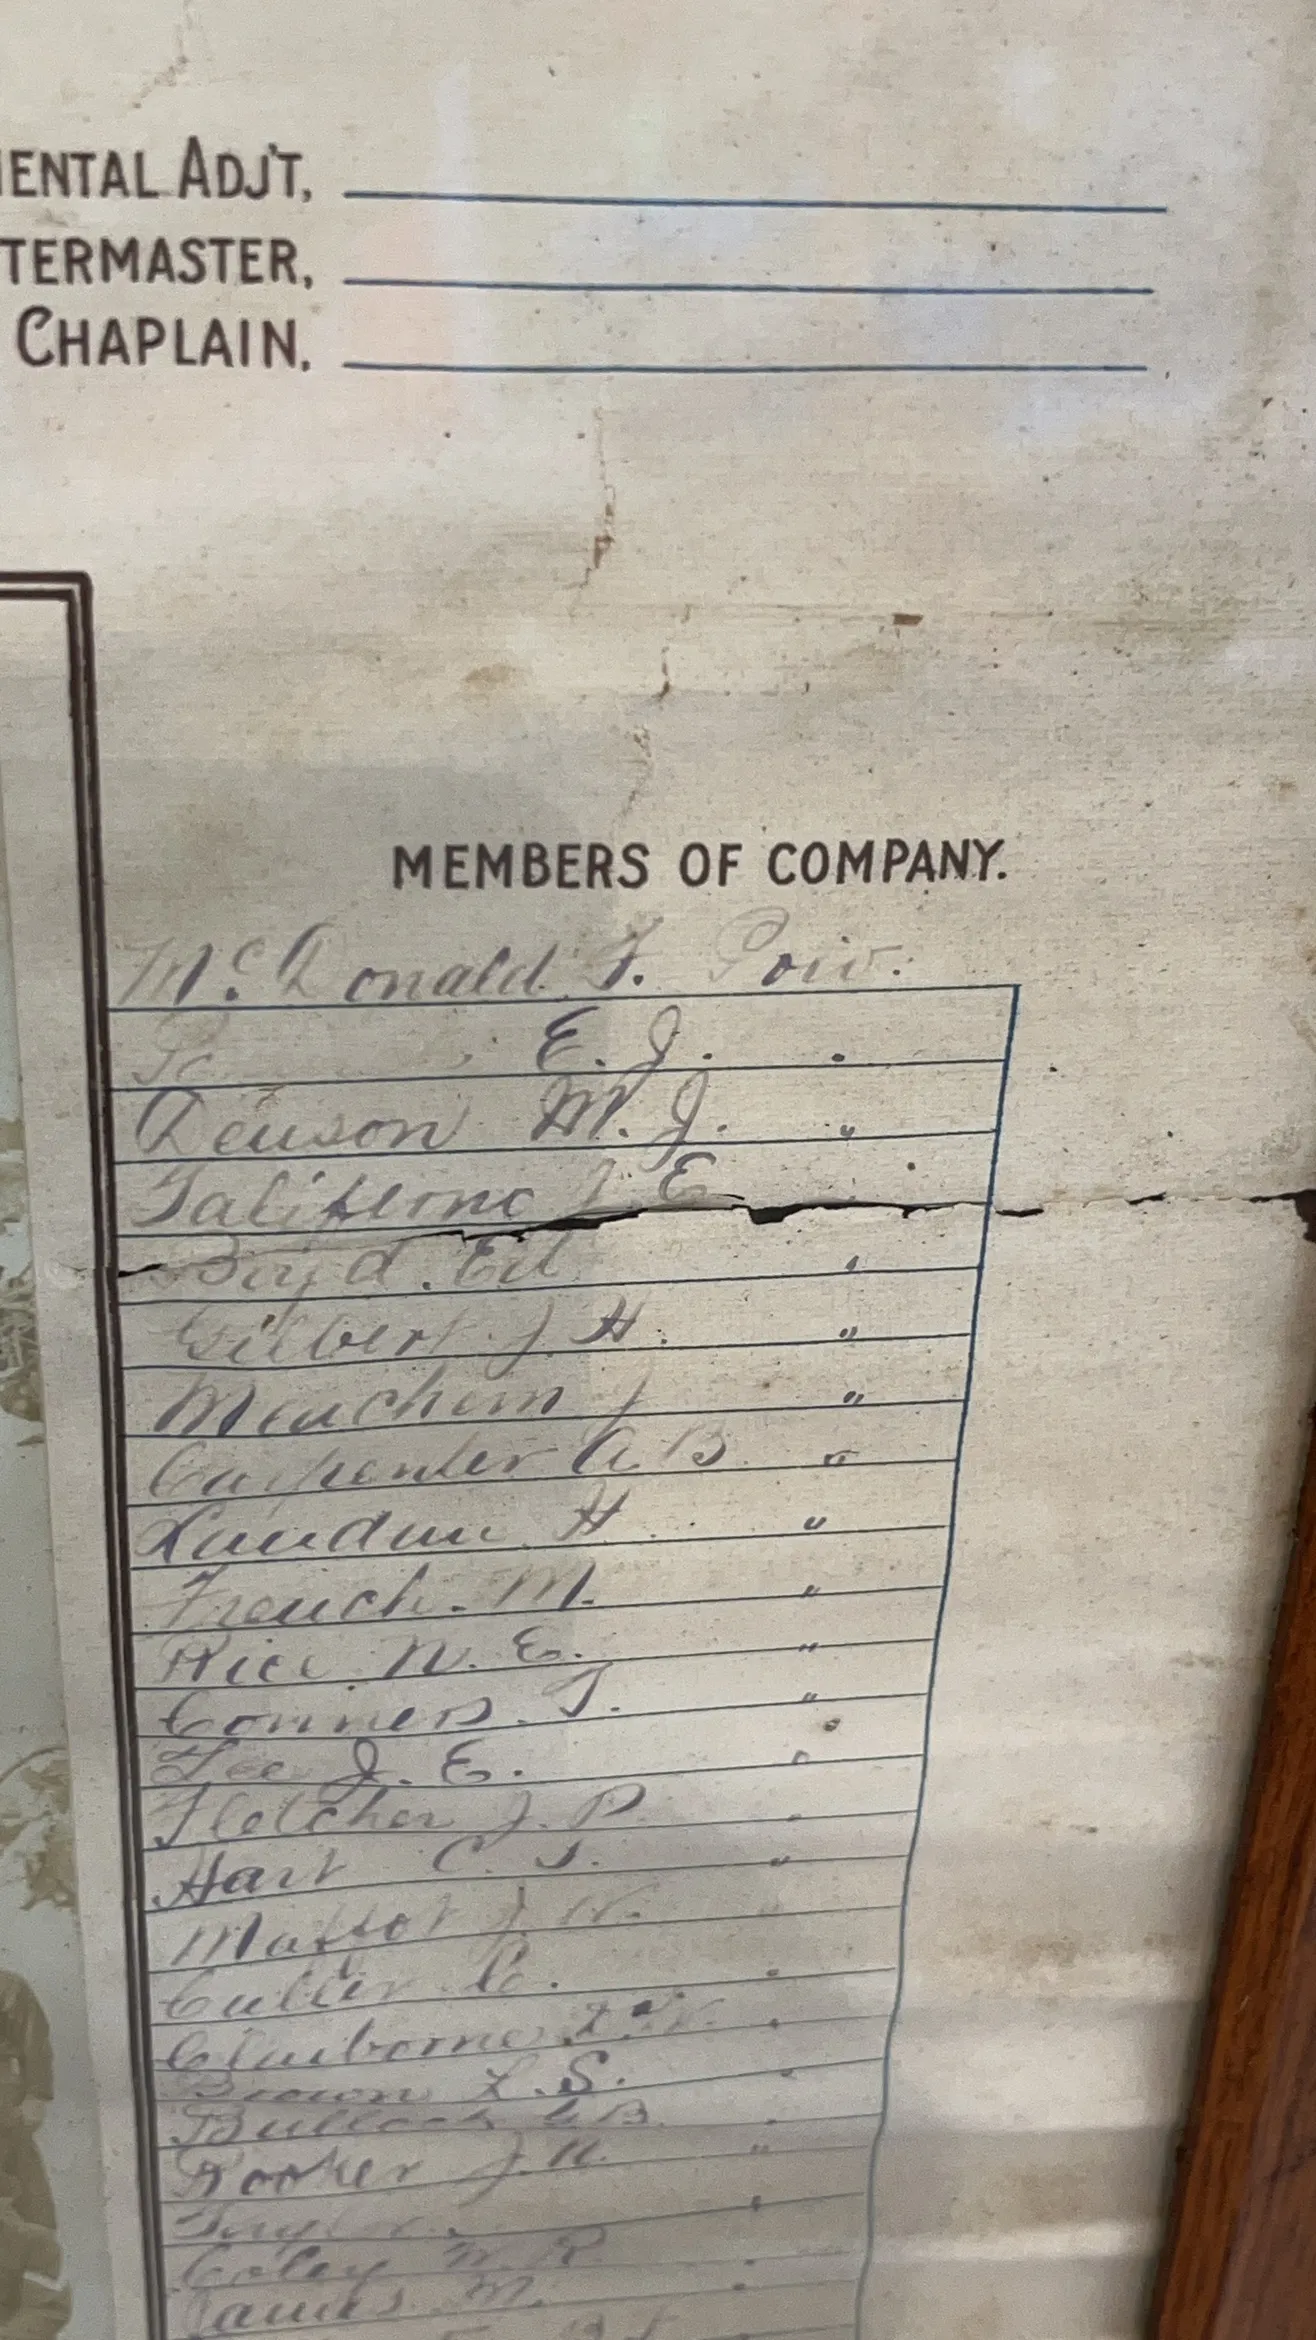 MENTAL ADJ'T,
TERMASTER,
CHAPLAIN,
MEMBERS OF COMPANY.
McDonald F. Priv.
E. J. "
Denson M. J. "
Taliferno J. E
Boyd. Ed "
Gilbert J. H. "
Meachem J "
Carpenter A B. "
Landau H. "
French. M. "
Rice N. E. "
Conners. T. "
Lee J. E. "
Fletcher J. P. "
Hart C. S. "
J W. "
Cutler C. "
Claiborne "
Brown L. S. "
Bullock B. "
Hooker J. H. "
Taylor "
Coley W. R. "
James M. "